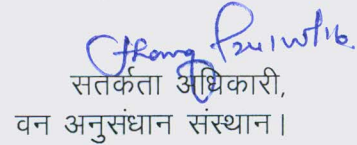 सतर्कता अधिकारी,
वन अनुसंधान संस्थान।